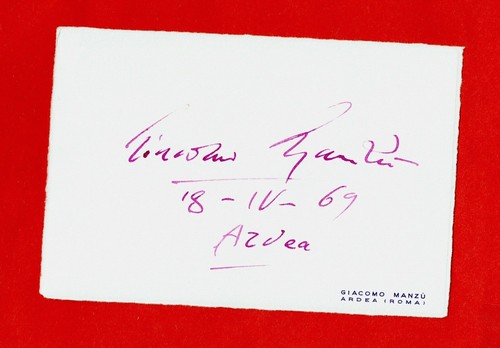 Giacomo Manzù
18-IV-69
Ardea
GIACOMO MANZÙ
ARDEA (ROMA)